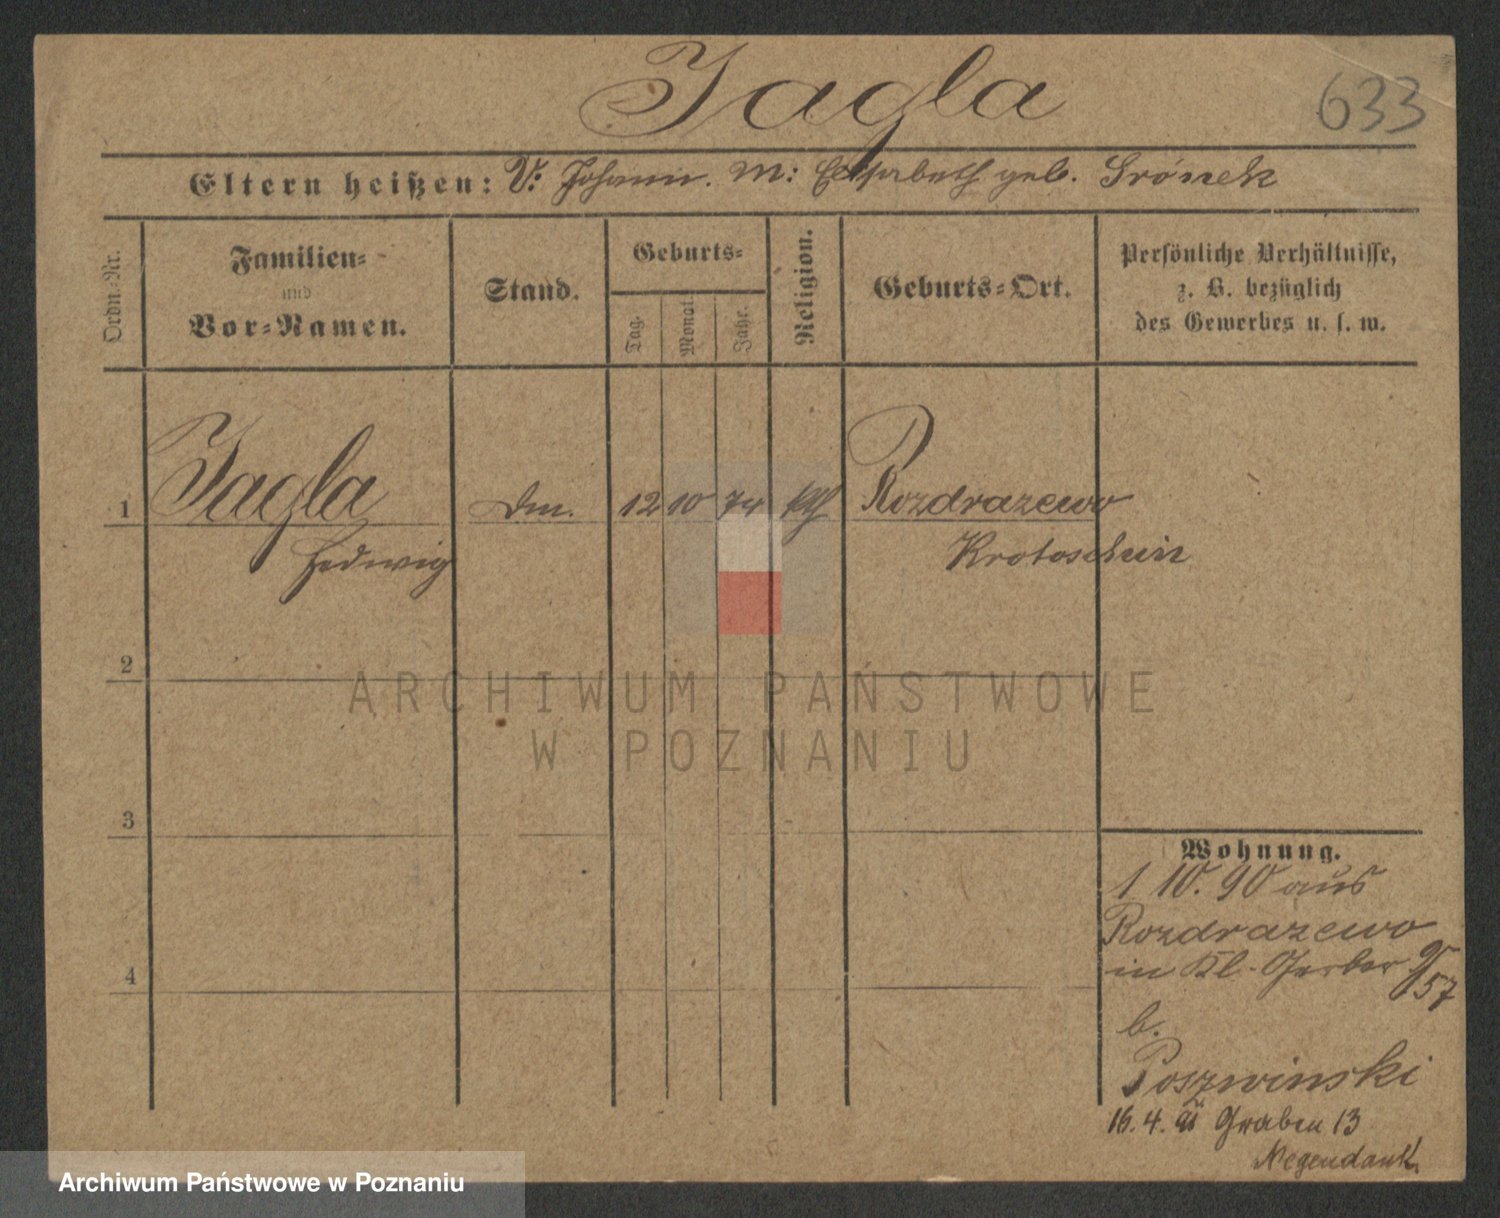 Jagla
633
Eltern heißen: V: Johann. M: Elisabeth geb. Grónek
Ordn.-Nr.
Familien-
und
Vor-Namen.
Stand.
Geburts-
Tag.
Monat.
Jahr.
Religion.
Geburts-Ort.
Persönliche Verhältnisse,
z. B. bezüglich
des Gewerbes u. s. w.
1 Jagla Dm. 12 10 74 kth Rozdrazewo
Hedwig Krotoschin
2
3
4
Wohnung.
1 10. 90 aus
Rozdrazewo
in Kl. Gerber 9/57
b.
Poszwinski
16. 4. 91 Graben 13
Megendank
ARCHIWUM PAŃSTWOWE
W POZNANIU
Archiwum Państwowe w Poznaniu